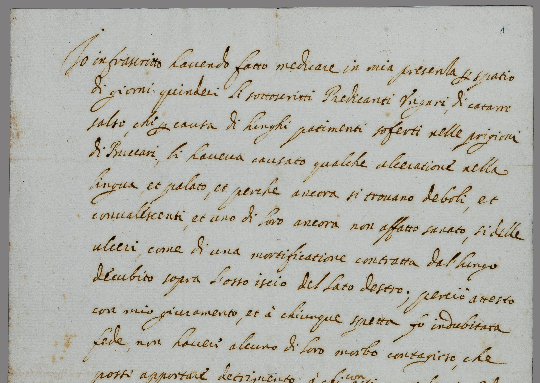 1
Io infrascritto havendo fatto medicare in mia presenza p spatio
di giorni quindeci li sottoscritti Predicanti Ungari, di catarro
salso, che p causa di lunghi patimenti soferti nelle prigioni
di Buccari, li haveva causato qualche ulceratione nella
lingua, et palato, et perche ancora si trovano deboli, et
convalescenti, et uno di loro ancora non affatto sanato, si delle
ulceri, come di una mortificatione contratta dal lungo
decubito sopra l'osso iscio del lato destro; perciò attesto
con mio giuramento, et à chiunque spetta fo indubitata
fede, non haver alcuno di loro morbo contagioso, che
possi apportare detrimento